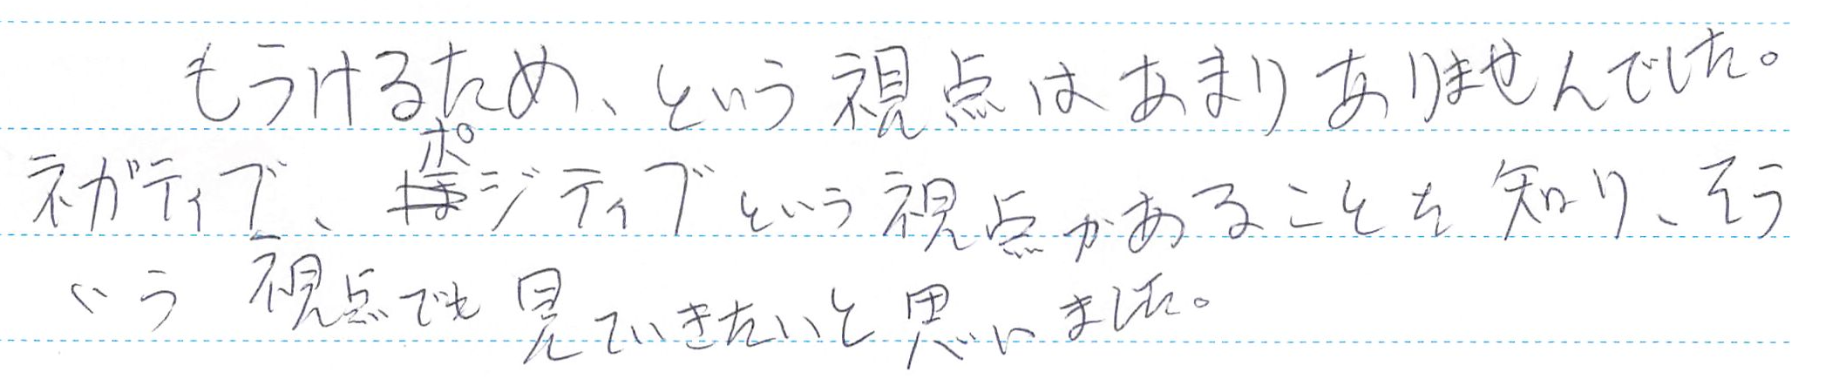 もうけるため、という視点はあまりありませんでした。
ネガティブ、ポジティブという視点があることを知り、そう
いう視点でも見ていきたいと思いました。